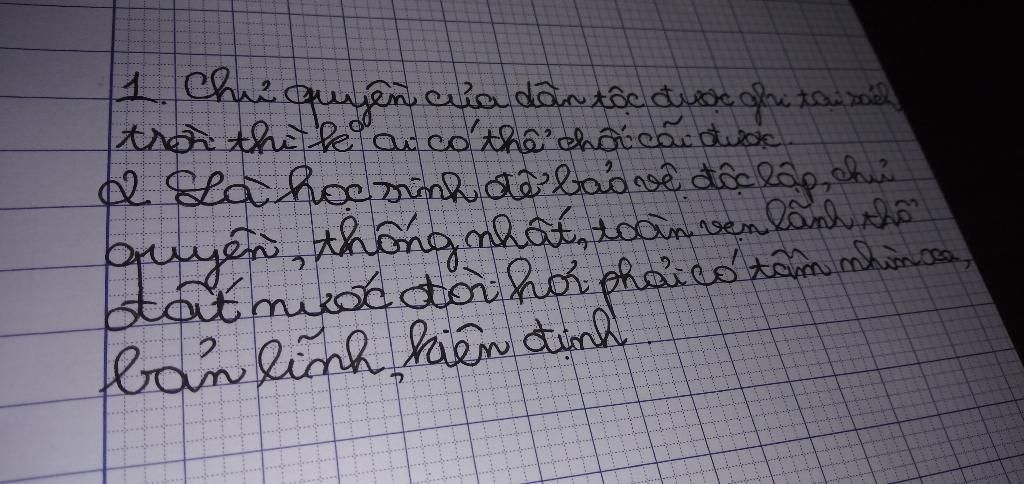 1. Chủ quyền của dân tộc được ghi tại sách
trời thì kẻ ai có thể chối cãi được.
2. Là học sinh để bảo vệ độc lập, chủ
quyền, thống nhất, toàn vẹn lãnh thổ
đất nước đòi hỏi phải có tầm nhìn xa,
bản lĩnh, kiên định.